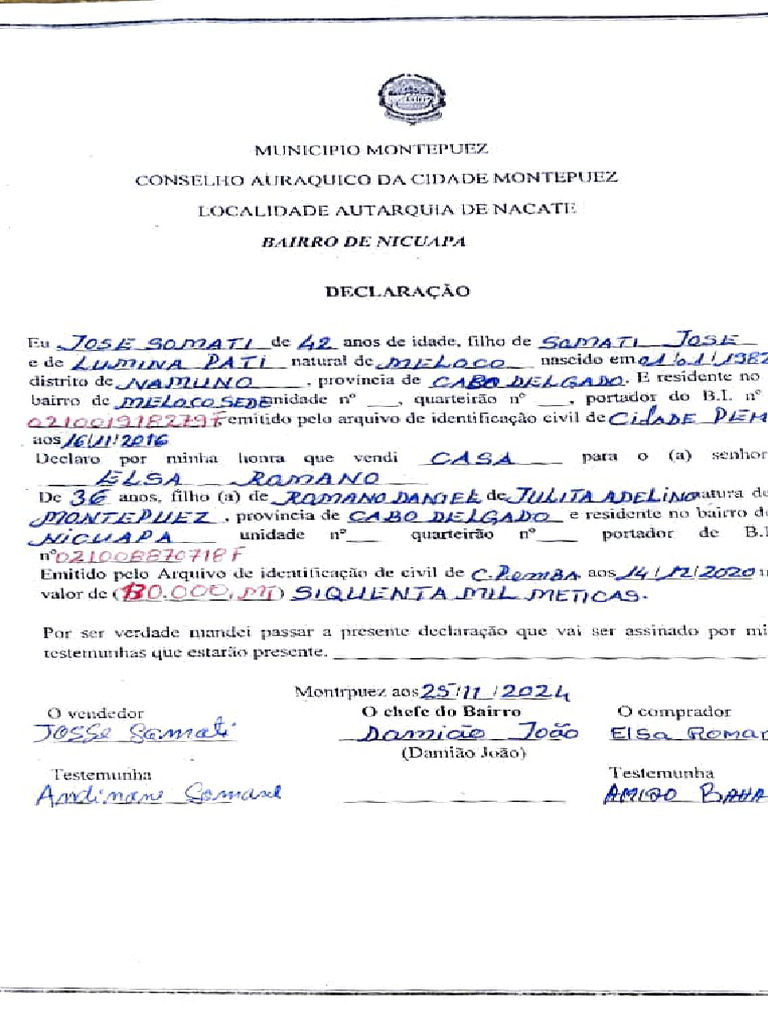 MUNICIPIO MONTEPUEZ
CONSELHO AURAQUICO DA CIDADE MONTEPUEZ
LOCALIDADE AUTARQUIA DE NACATE
BAIRRO DE NICUAPA
DECLARAÇÃO
Eu JOSE SOMATI de 42 anos de idade, filho de SOMATI JOSE
e de LUMINA PATI natural de MELOCO nascido em 01/01/1982
distrito de NAMUNO, província de CABO DELGADO. E residente no
bairro de MELOCO SEDE unidade nº ___, quarteirão nº ___, portador do B.I. nº
021001918279F emitido pelo arquivo de identificação civil de CIDADE PEM
aos 16/11/2016
Declaro por minha honra que vendi CASA para o (a) senhor
ELSA ROMANO
De 36 anos, filho (a) de ROMANO DANIEL de JULITA ADELINO natura de
MONTEPUEZ, província de CABO DELGADO e residente no bairro de
NICUAPA unidade nº___ quarteirão nº___ portador de B.I
nº021008870718F
Emitido pelo Arquivo de identificação de civil de C.PEMBA aos 14/12/2020
valor de (.000,MT) SIQUENTA MIL METICAS.
Por ser verdade mandei passar a presente declaração que vai ser assinado por mi
testemunhas que estarão presente.
Montrpuez aos 25/11/2024
O vendedor O chefe do Bairro O comprador
Josse Somati Damião João Elsa Roman
(Damião João)
Testemunha Testemunha
Andinane AMIGO BAHA